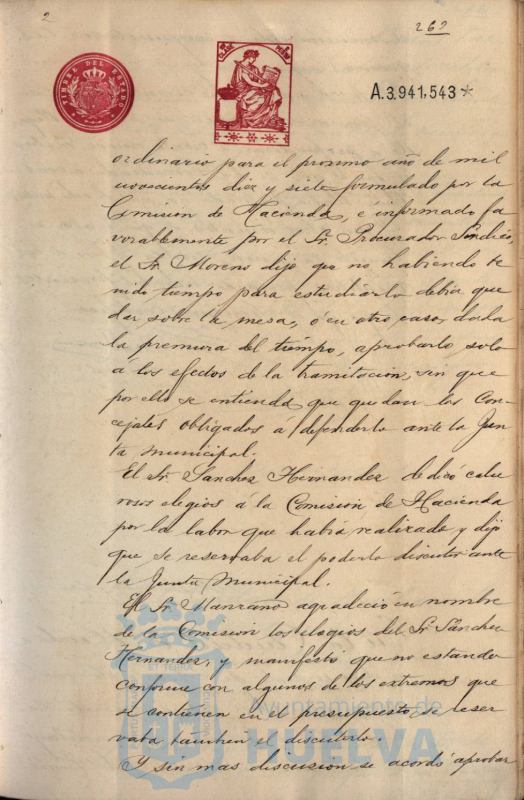 2
262
TIMBRE DEL ESTADO
A.3.941,543*
ordinario para el proximo año de mil
novescientos diez y siete formulado por la
Comision de Hacienda, é informado fa
vorablemente por el Sr. Procurador Sindico,
el Sr. Moreno dijo que no habiendo te
nido tiempo para estudiarlo debia que
dar sobre la mesa, ó en otro caso, dada
la premura del tiempo, aprobarlo solo
á los efectos de la tramitacion, sin que
por ello se entienda que quedan los Con-
cejales obligados á defenderlo ante la Jun
ta Municipal.
El Sr. Sanchez Hernandez dedicó calu
rosos elogios á la Comision de Hacienda
por la labor que habia realizado y dijo
que se reservaba el poderlo discutir ante
la Junta Municipal.
El Sr. Manzano agradeció en nombre
de la Comision los elogios del Sr. Sanchez
Hernandez, y manifestó que no estando
conforme con algunos de los extremos que
se contienen en el presupuesto, se reser
vaba tambien el discutirlo.
Y sin mas discusion se acordó aprobar
Ayuntamiento de
HUELVA